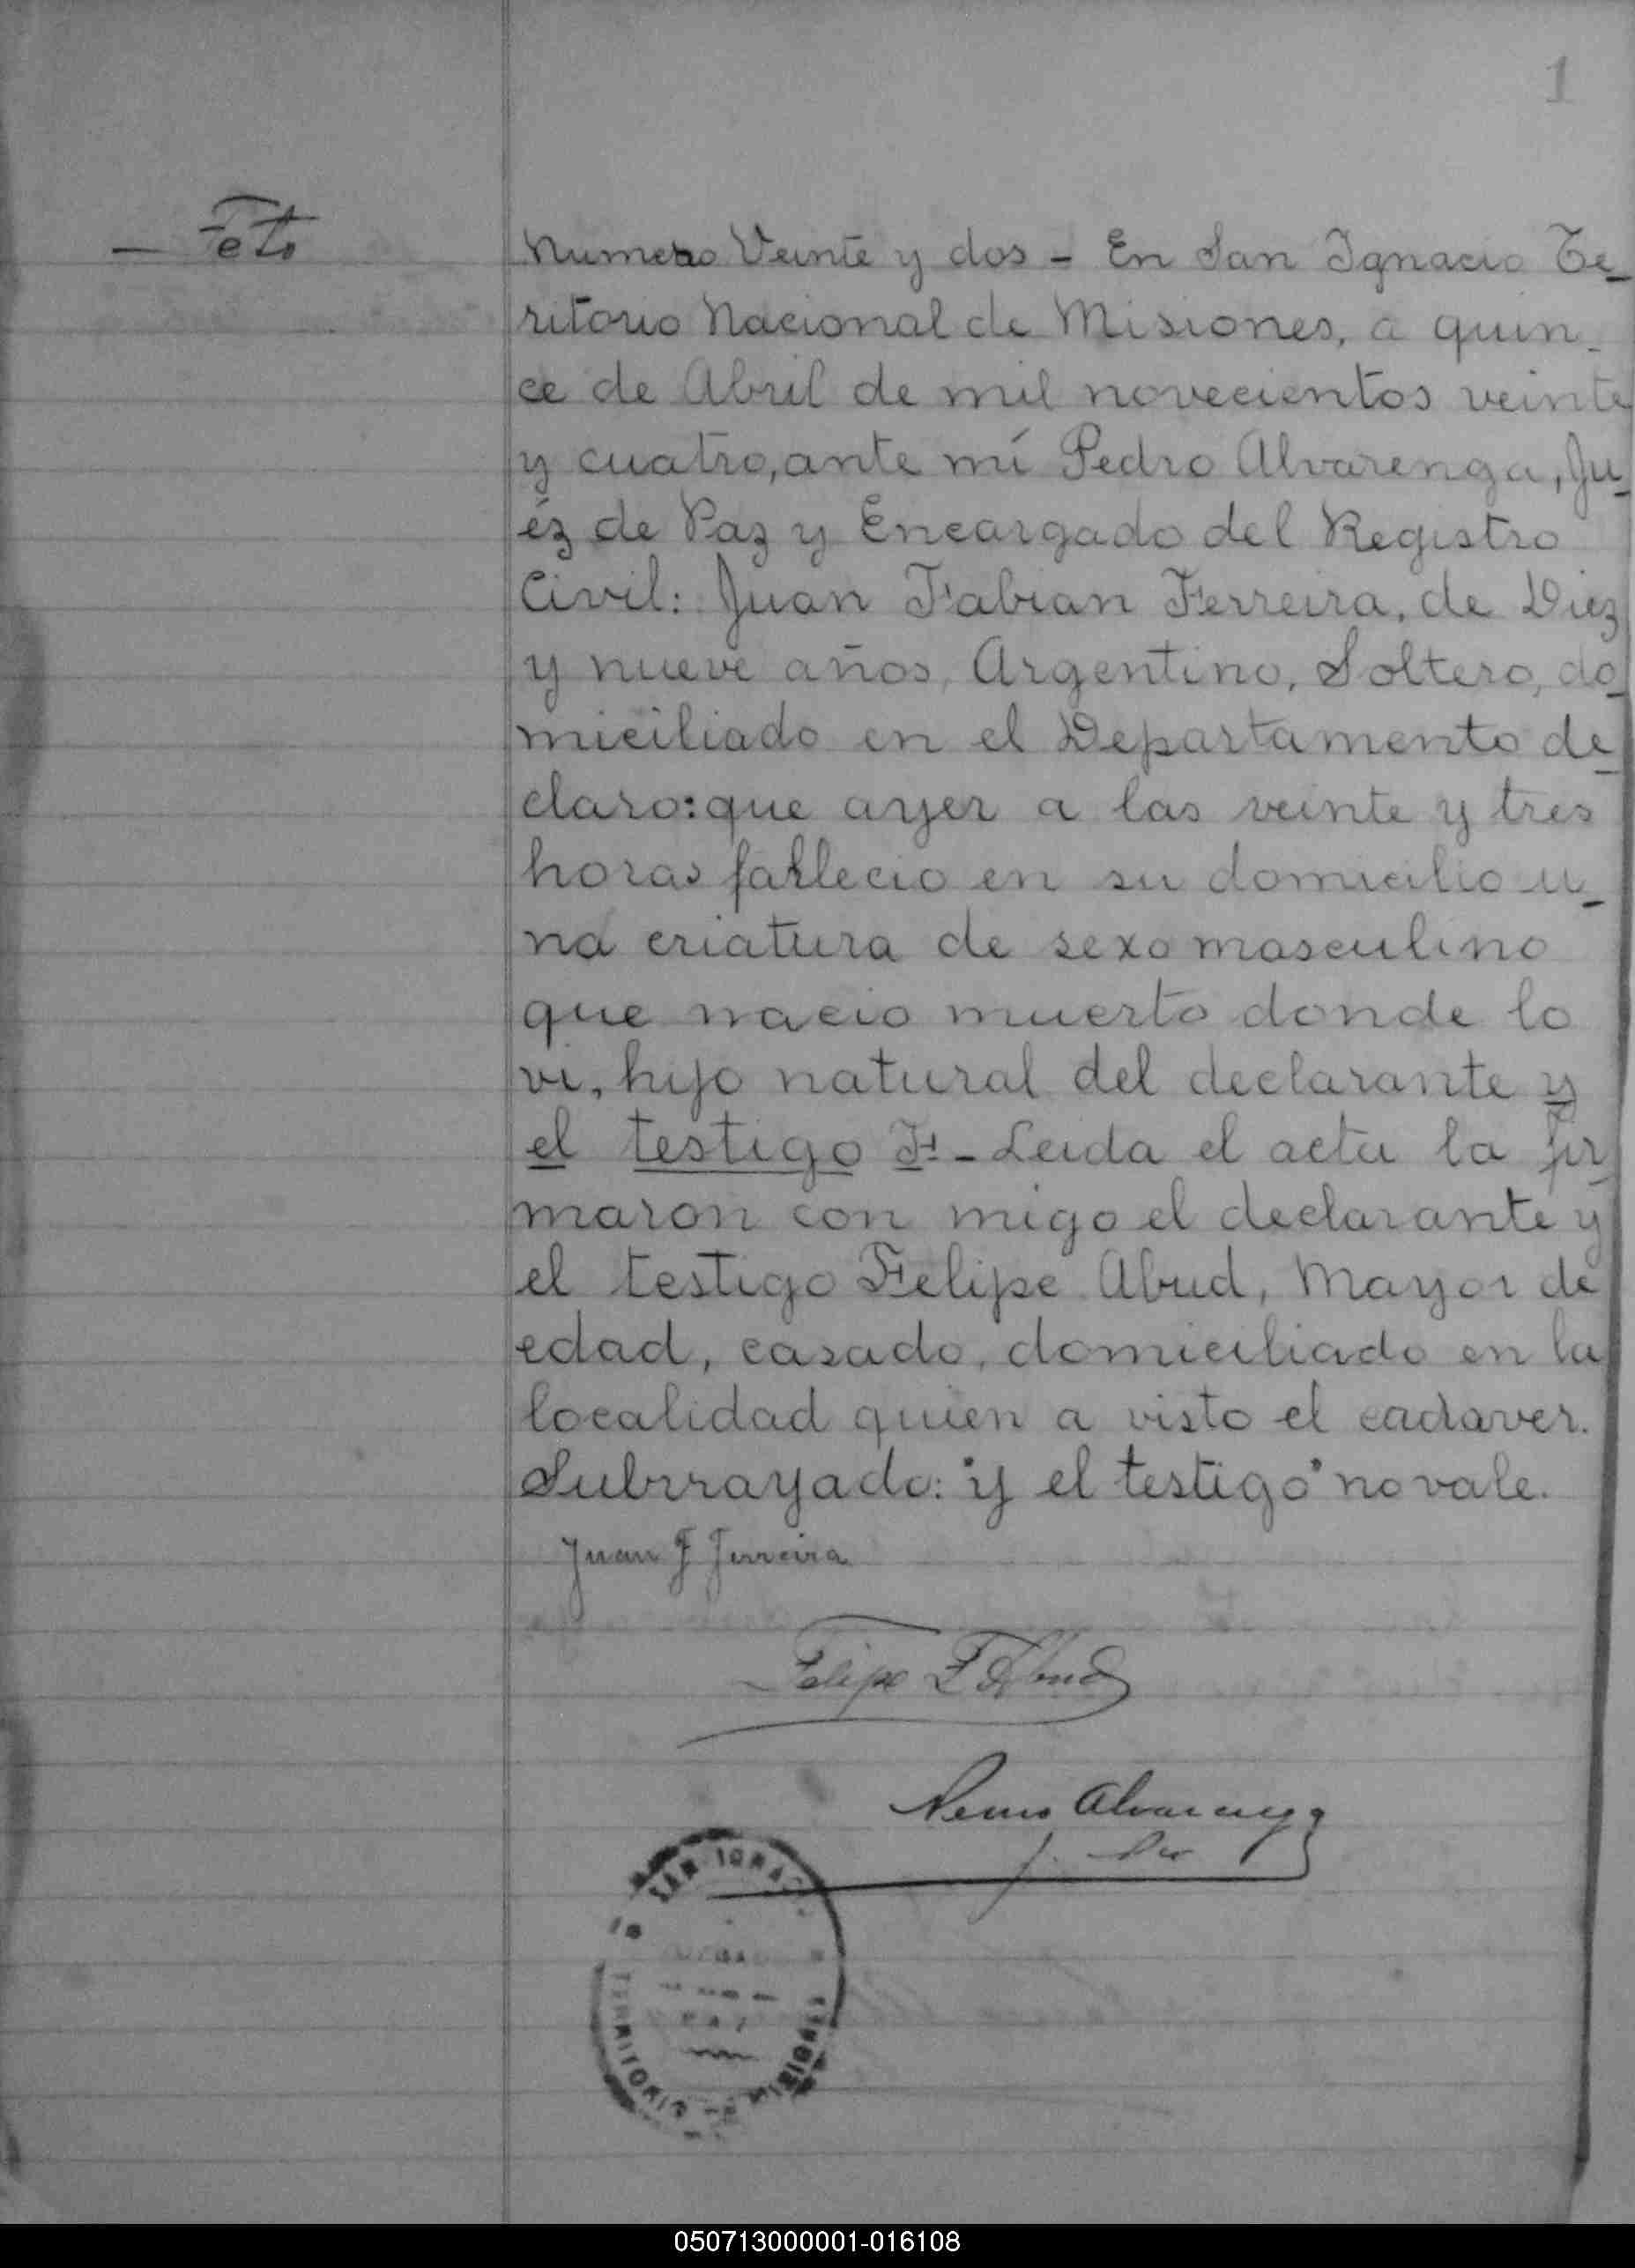 1
— Feto
Numero Veinte y dos - En San Ignacio Te-
ritorio Nacional de Misiones, a quin-
ce de Abril de mil novecientos veinte
y cuatro, ante mí Pedro Alvarenga, Ju-
éz de Paz y Encargado del Registro
Civil: Juan Fabian Ferreira, de Diez
y nueve años, Argentino, Soltero, do-
miciliado en el Departamento de-
claro: que ayer a las veinte y tres
horas fallecio en su domicilio u-
na criatura de sexo masculino
que nacio muerto donde lo
vi, hijo natural del declarante y
el testigo F. - Leida el acta la fir-
maron con migo el declarante y
el testigo Felipe Abud, Mayor de
edad, casado, domiciliado en la
localidad quien a visto el cadaver.
Subrrayado: "y el testigo" no vale.
Juan F Ferreira
Felipe F Abud
Alvarenga
SAN IGNAC
PAZ
TERRITORIO
050713000001-016108